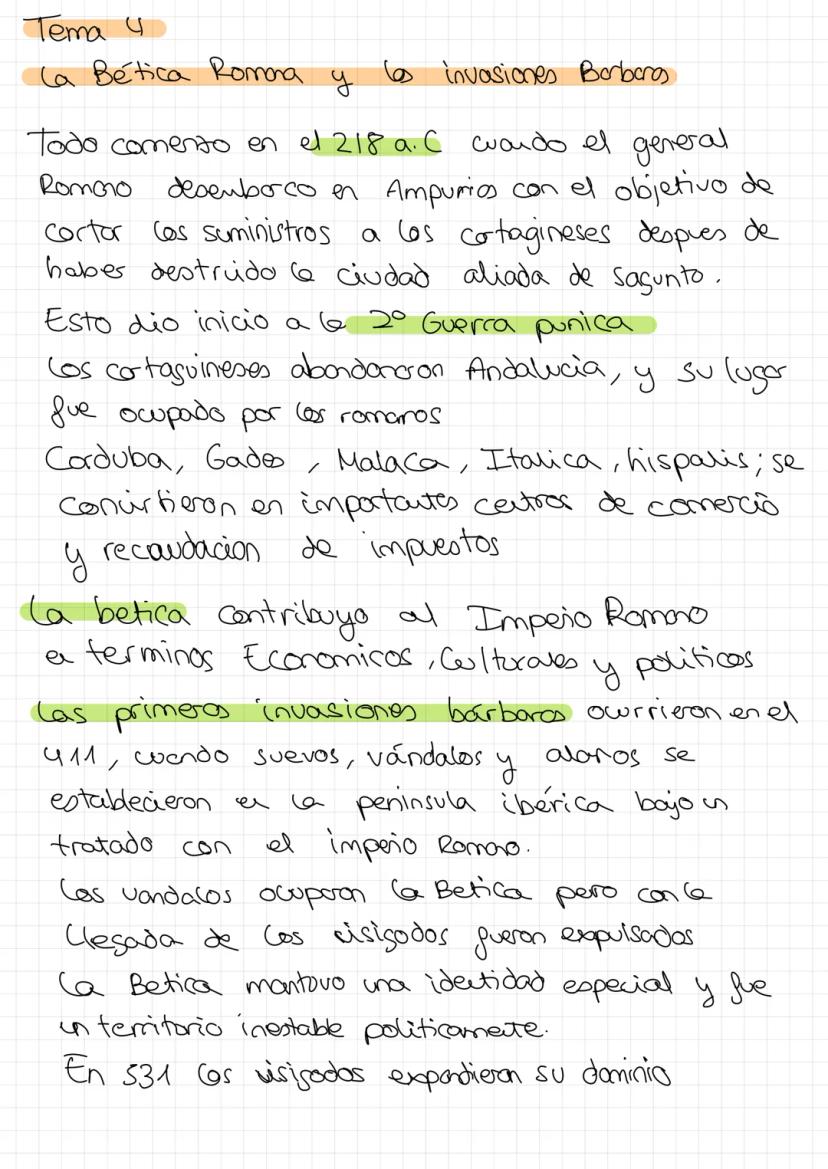 Tema 4
La Bética Romana y las invasiones Barbaras
Todo comenzo en el 218 a.C cuando el general
Romano desenbarco en Ampurias con el objetivo de
cortar los suministros a los cartagineses despues de
haber destruido la ciudad aliada de sagunto.
Esto dio inicio a la 2º Guerra punica
Los cartaguineses abandonaron Andalucia, y su lugar
fue ocupado por los romanos
Corduba, Gades, Malaca, Italica, hispalis; se
convirtieron en importantes centros de comercio
y recaudacion de impuestos
La betica contribuyo al Imperio Romano
en terminos Economicos, Culturales y politicos
Las primeras invasiones bárbaras ocurrieron en el
411, cuando suevos, vándalos y alanos se
establecieron en la peninsula ibérica bajo un
tratado con el imperio Romano.
Los vandalos ocuparon la Betica pero con la
llegada de los visigodos fueron expulsados
La Betica mantuvo una identidad especial y fue
un territorio inestable politicamente.
En 531 los visigodos expandieron su dominio